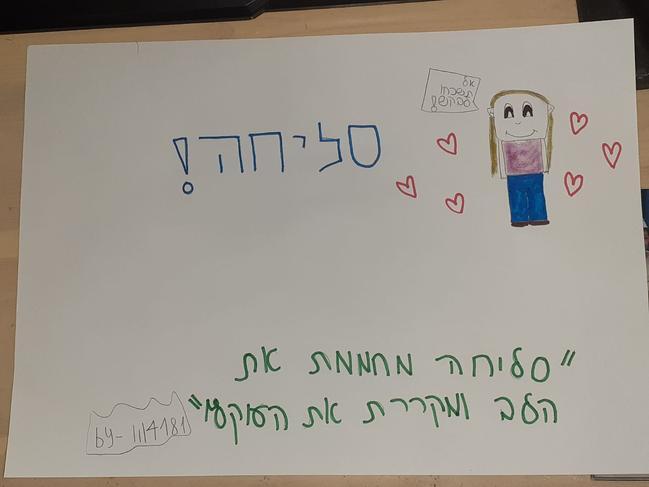 אל
תשכחו
לבקש!
סליחה!
"סליחה מחממת את
הלב ומקררת את העוקץ"
by- lil4181